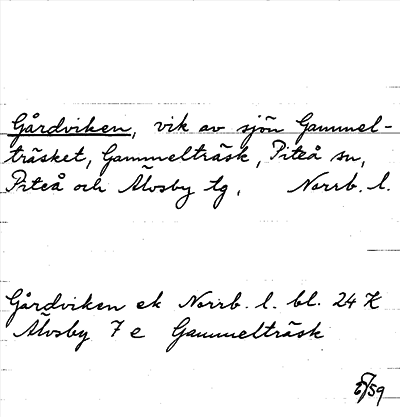 Gårdviken, vik av sjön Gammel-
träsket, Gammelträsk, Piteå sn,
Piteå och Älvsby tg, Norrb. l.
Gårdviken ek Norrb. l. bl. 24 K
Älvsby 7 e Gammelträsk
/59